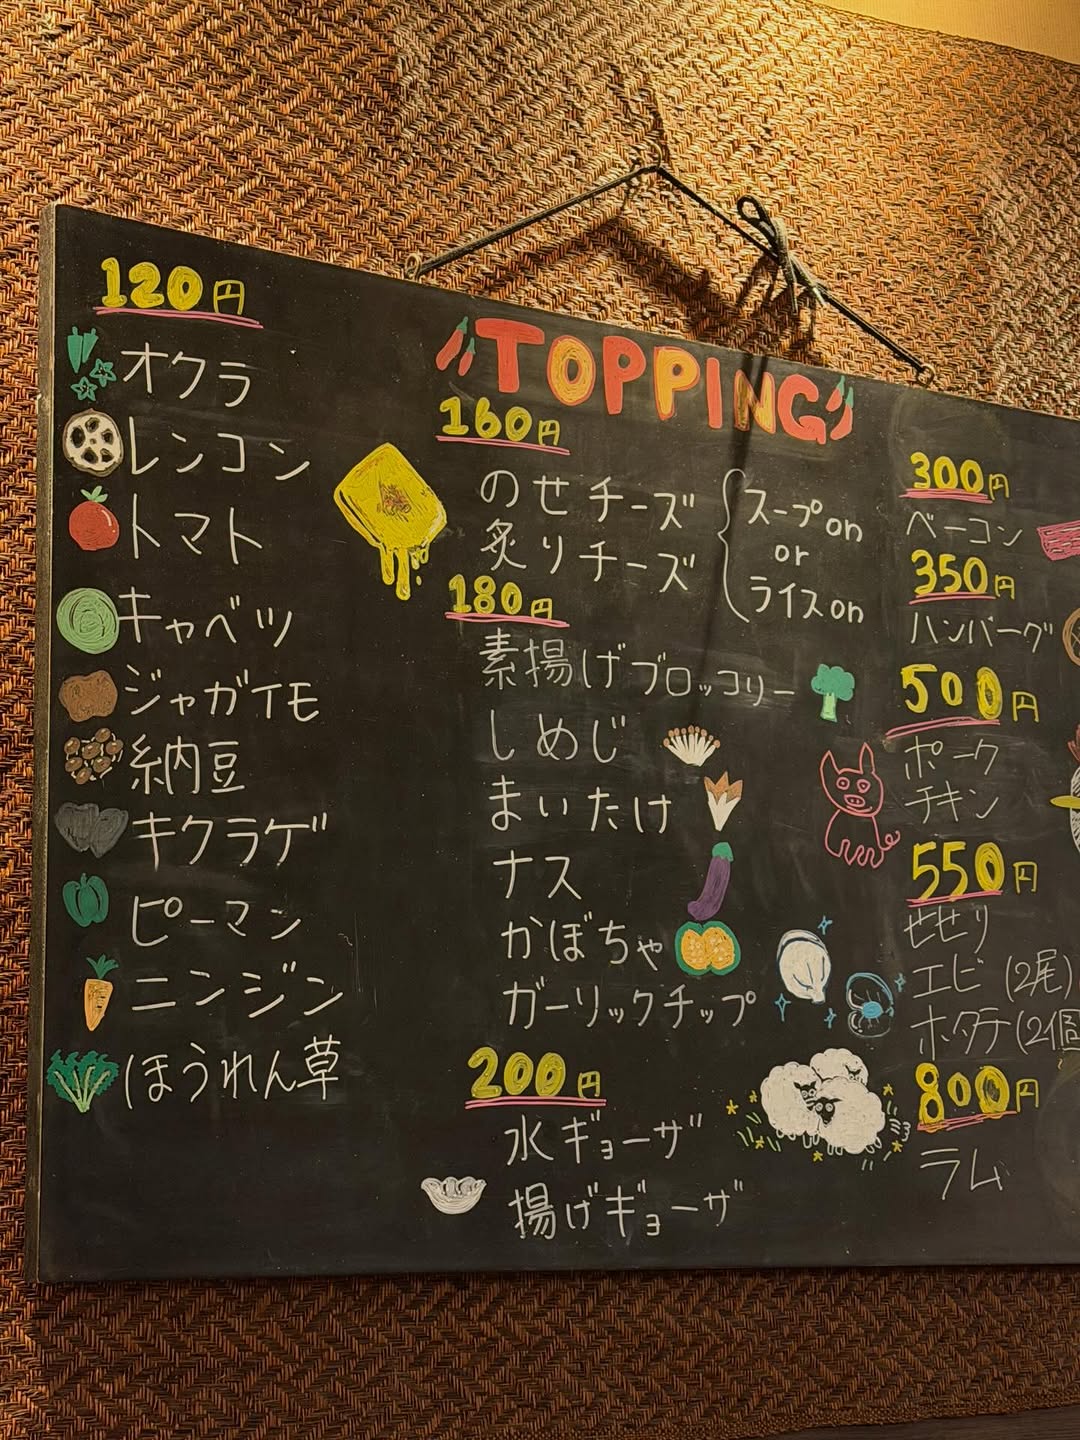 TOPPING
120円
オクラ
レンコン
トマト
キャベツ
ジャガイモ
納豆
キクラゲ
ピーマン
ニンジン
ほうれん草
160円
のせチーズ
炙りチーズ
スープon
or
ライスon
180円
素揚げブロッコリー
しめじ
まいたけ
ナス
かぼちゃ
ガーリックチップ
200円
水ギョーザ
揚げギョーザ
300円
ベーコン
350円
ハンバーグ
500円
ポーク
チキン
550円
せせり
エビ(2尾)
ホタテ(2個
800円
ラム